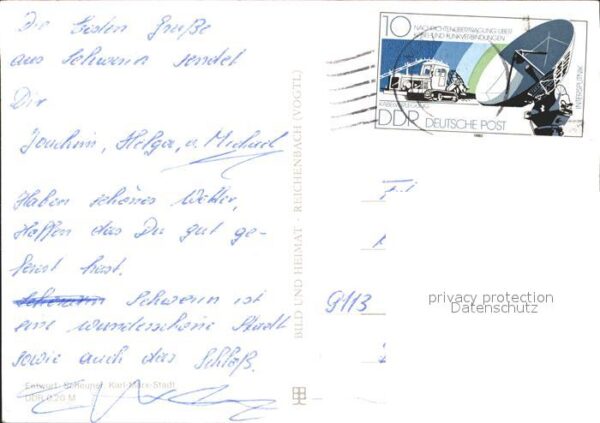 Die besten Grüße
aus Schwerin sendet
Dir
Joachim, Helga, u. Michael
Haben schönes Wetter,
Hoffen das Du gut ge-
feiert hast.
Schwerin ist
eine wunderschöne Stadt
sowie auch das Schloß.
Entwurf: Scheuner, Karl-Marx-Stadt
DDR 0,20 M
BILD UND HEIMAT · REICHENBACH (VOGTL)
10
NACHRICHTENÜBERTRAGUNG ÜBER
KABEL- UND FUNKVERBINDUNGEN
KABELVERLEGUNG
INTERSPUTNIK
DDR DEUTSCHE POST
9113
privacy protection
Datenschutz